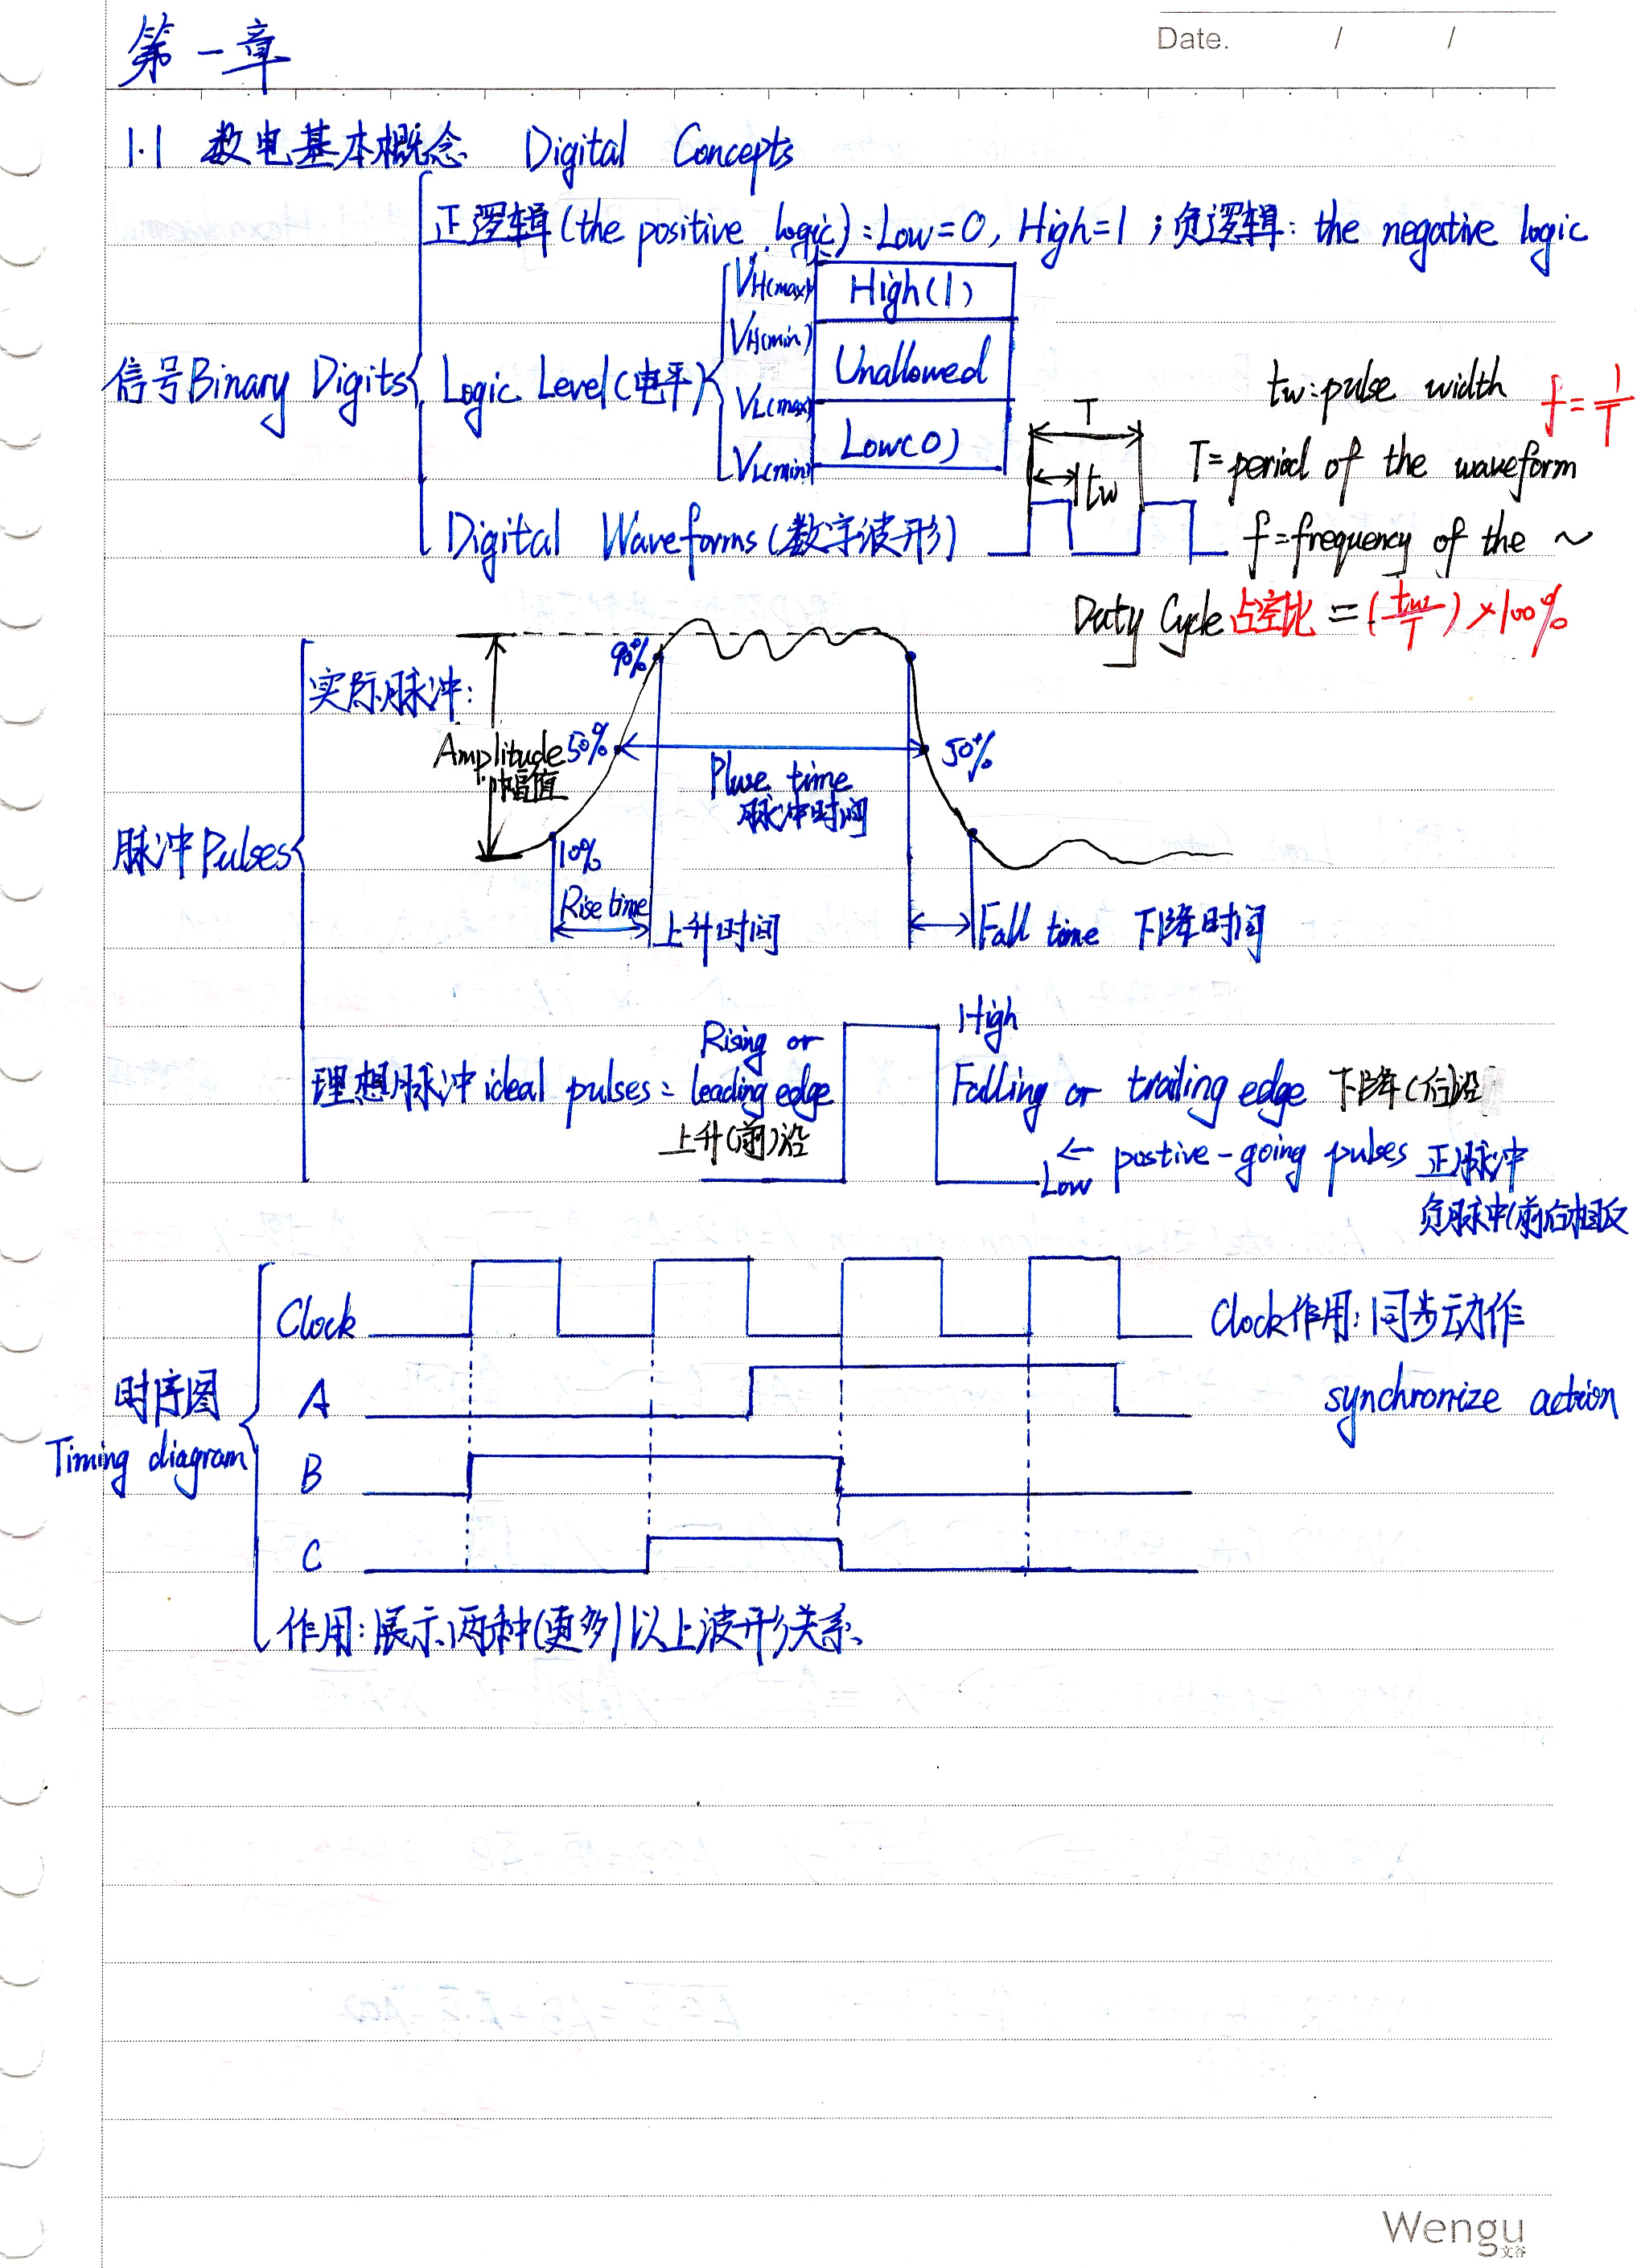 Date. / /
第一章
1.1 数电基本概念 Digital Concepts
正逻辑(the positive logic):Low=0, High=1;负逻辑: the negative logic
VH(max) High(1)
VH(min)
Unallowed
信号Binary Digits Logic Level(电平)
VL(max)
Low(0)
VL(min)
T
tw
tw:pulse width f=1/T
T=period of the waveform
Digital Waveforms(数字波形)
f=frequency of the ~
Duty Cycle占空比=(tw/T)×100%
90%
实际脉冲:
Amplitude 50% 50%
幅值
Pluse time
脉冲时间
脉冲Pulses
10%
Rise time
上升时间
Fall time 下降时间
High
Rising or
理想脉冲ideal pulses= leading edge Falling or trailing edge 下降(后)沿
上升(前)沿
Low ← postive-going pulses 正脉冲
负脉冲(前后相反
Clock Clock作用:同步动作
时序图 A synchronize action
Timing diagram B
C
作用:展示两种(更多)以上波形关系.
Wengu
文谷